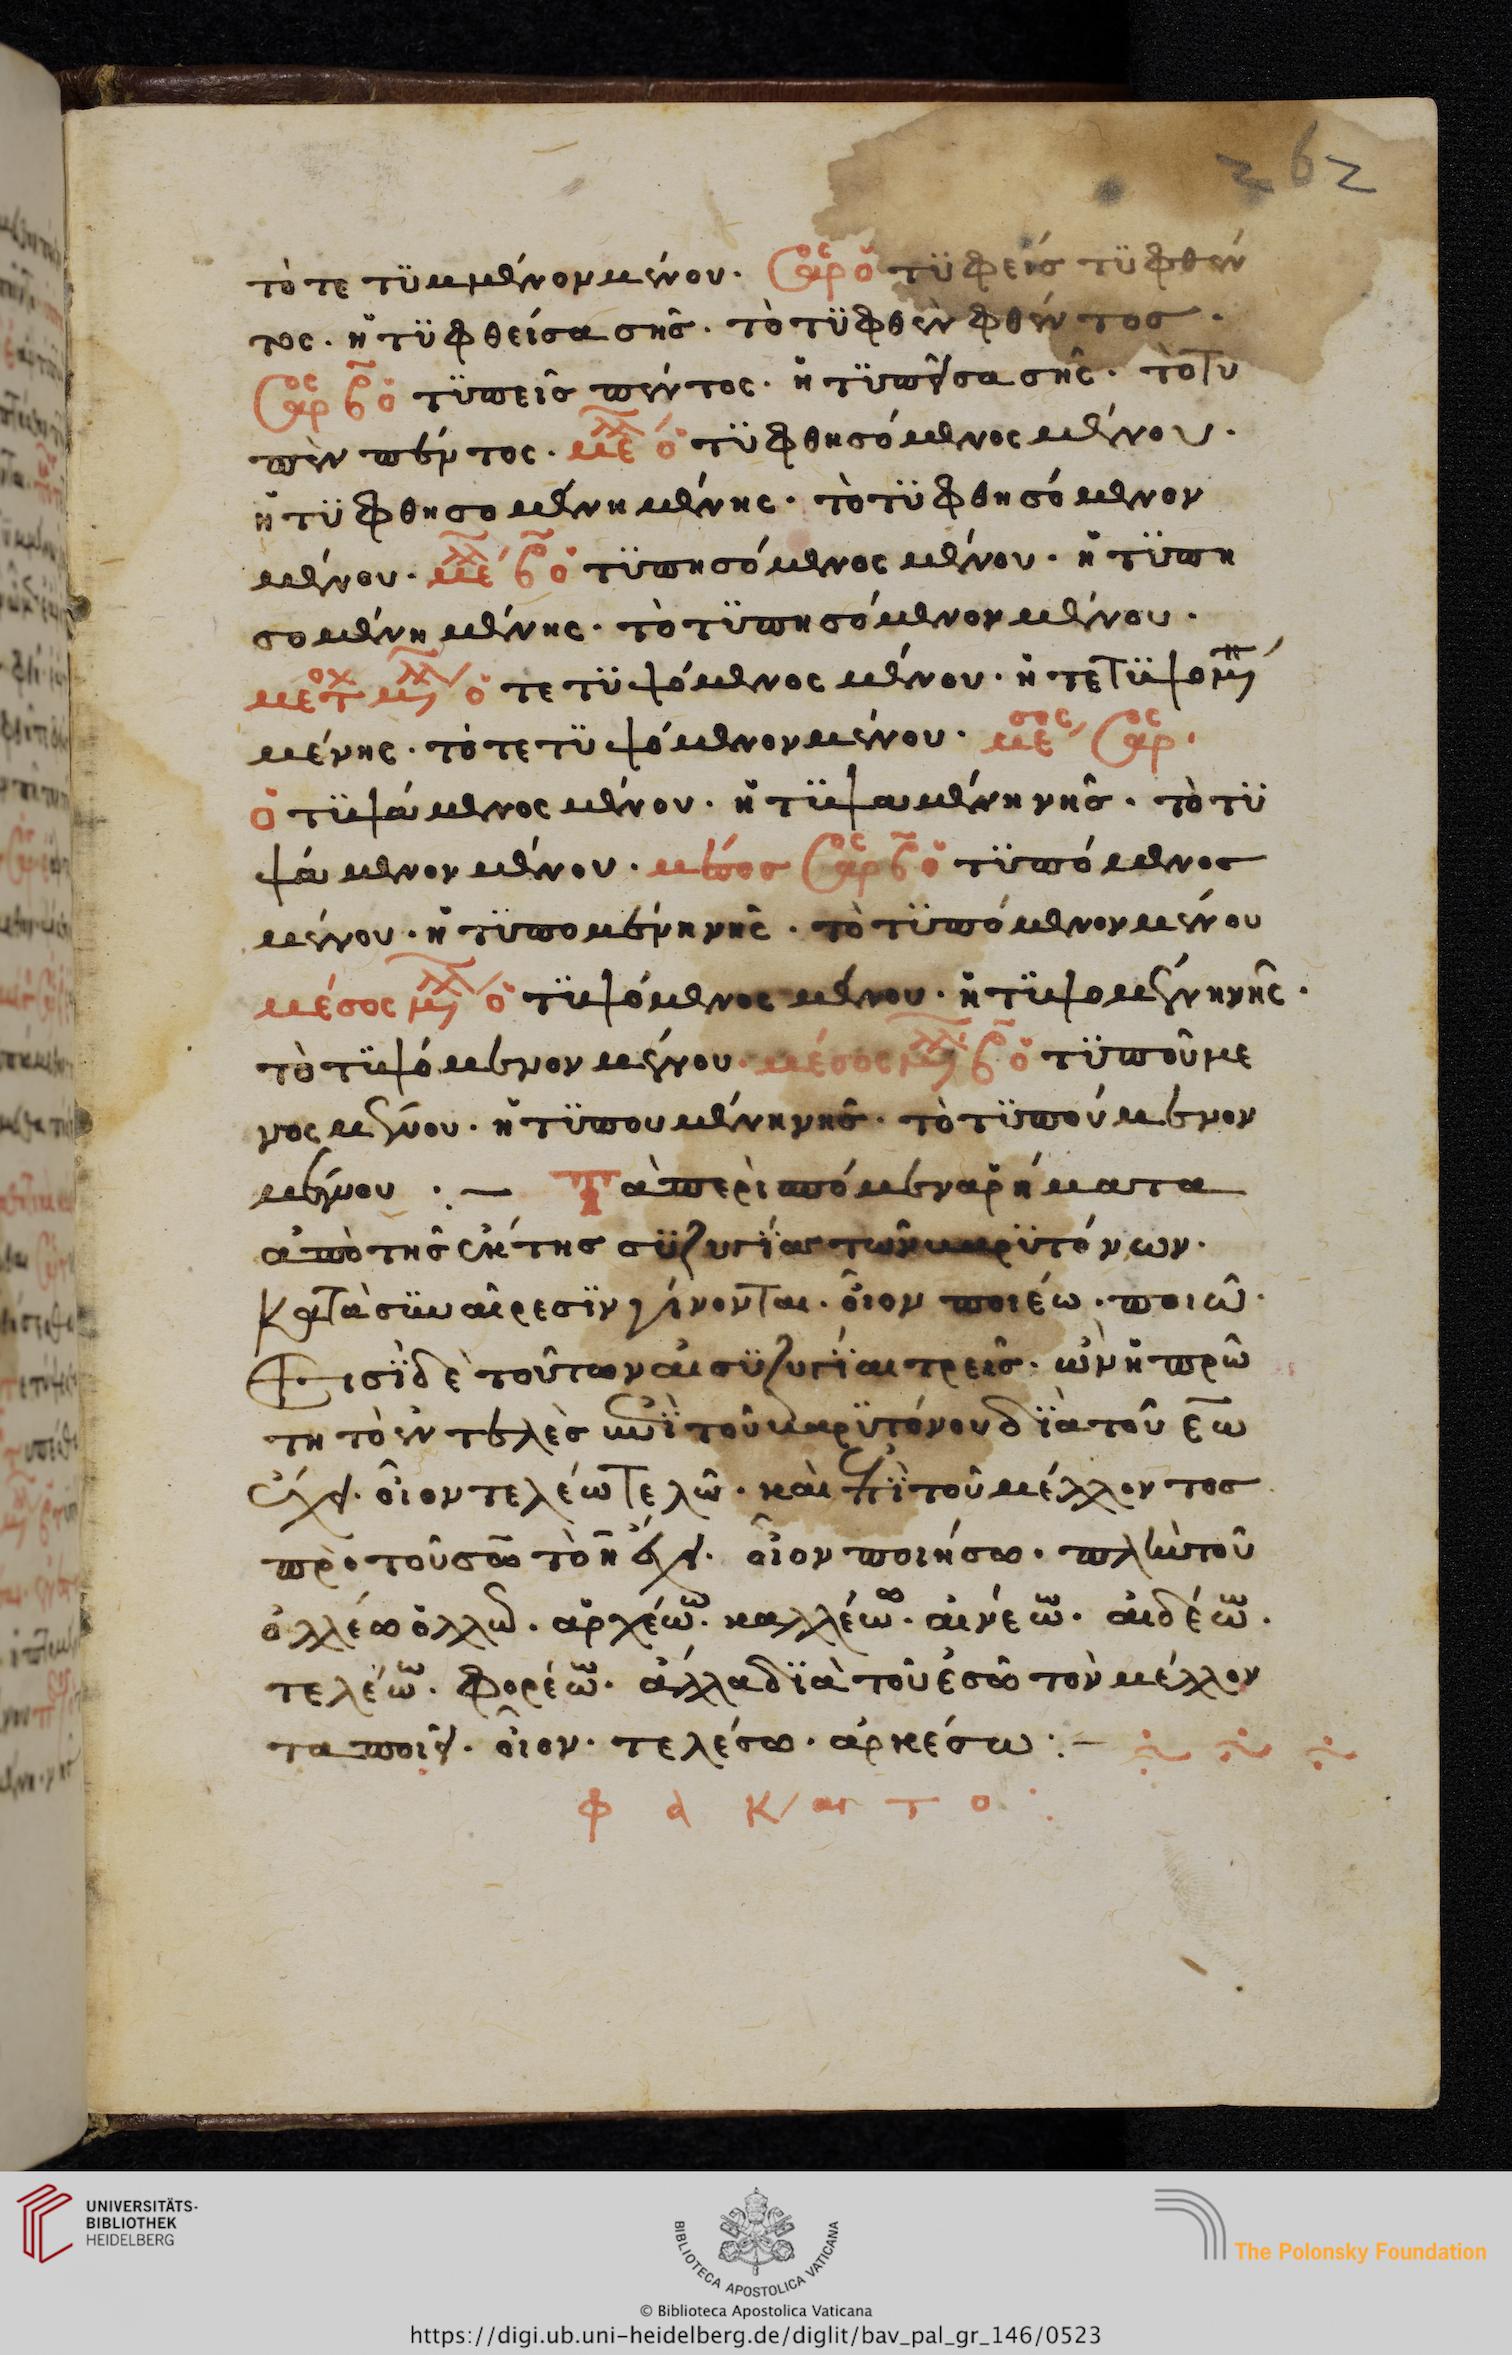 262
τὸ τετϋμμένον μένου. ἀόρος ὁ τϋφθεὶς τϋφθέν
τος. ἡ τϋφθείσα σης. τὸ τϋφθὲν φθέντος.
ἀόρος β ὁ τϋπεὶς πέντος. ἡ τϋπεῖσα σης. τὸ τυ
πὲν πέντος. με ὁ τϋφθησόμενος μένου.
ἡ τϋφθησομένη μένης. τὸ τϋφθησόμενον
μένου. με β ὁ τϋπησόμενος μένου. ἡ τϋπη
σομένη μένης. τὸ τϋπησόμενον μένου.
ὁ τετϋψόμενος μένου. ἡ τετϋψομένη
μένης. τὸ τετϋψόμενον μένου. μέσος ἀόρος.
ὁ τϋψάμενος μένου. ἡ τϋψαμένη νης. τὸ τϋ
ψάμενον μένου. μέσος ἀόρος β ὁ τϋπόμενος
μένου. ἡ τϋπομένη νης. τὸ τϋπόμενον μένου
μέσος μ ὁ τϋψόμενος μένου. ἡ τϋψομένη νης.
τὸ τϋψόμενον μένου. μέσος μ β ὁ τϋποῦμε
νος μένου. ἡ τϋπουμένη νης. τὸ τϋπούμενον
μένου :— Τὰ περισπόμενα ῥήματα
ἀπὸ τῆς ἕκτης σϋζυγΐας τῶν βαρϋτόνων.
κατὰ σϋναίρεσϊν γίνονται. οἷον ποιέω. ποιῶ.
Εἰσϊ δὲ τούτων αἱ σϋζυγΐαι τρεῖς. ὧν ἡ πρώ
τη τὸ ἐντελὲς ἐπϊ τοῦ βαρϋτόνου δϊὰ τοῦ εω
ἔχει. οἷον τελέω τελῶ. καὶ ἐπϊ τοῦ μέλλοντος
πρὸ τοῦ σω τὸ η ἔχει. οἷον ποιήσω. πλὴν τοῦ
ὀλλέω ὀλλῶ. ἀρχέω. καλλέω. αἰνέω. αἰδέω.
τελέω. φορέω. ἀλλὰ δϊὰ τοῦ έσω τὸν μέλλον
τα ποιεῖ. οἷον. τελέσω. ἀρκέσω :—
UNIVERSITÄTS-
BIBLIOTHEK
HEIDELBERG
BIBLIOTECA APOSTOLICA VATICANA
The Polonsky Foundation
© Biblioteca Apostolica Vaticana
https://digi.ub.uni-heidelberg.de/diglit/bav_pal_gr_146/0523